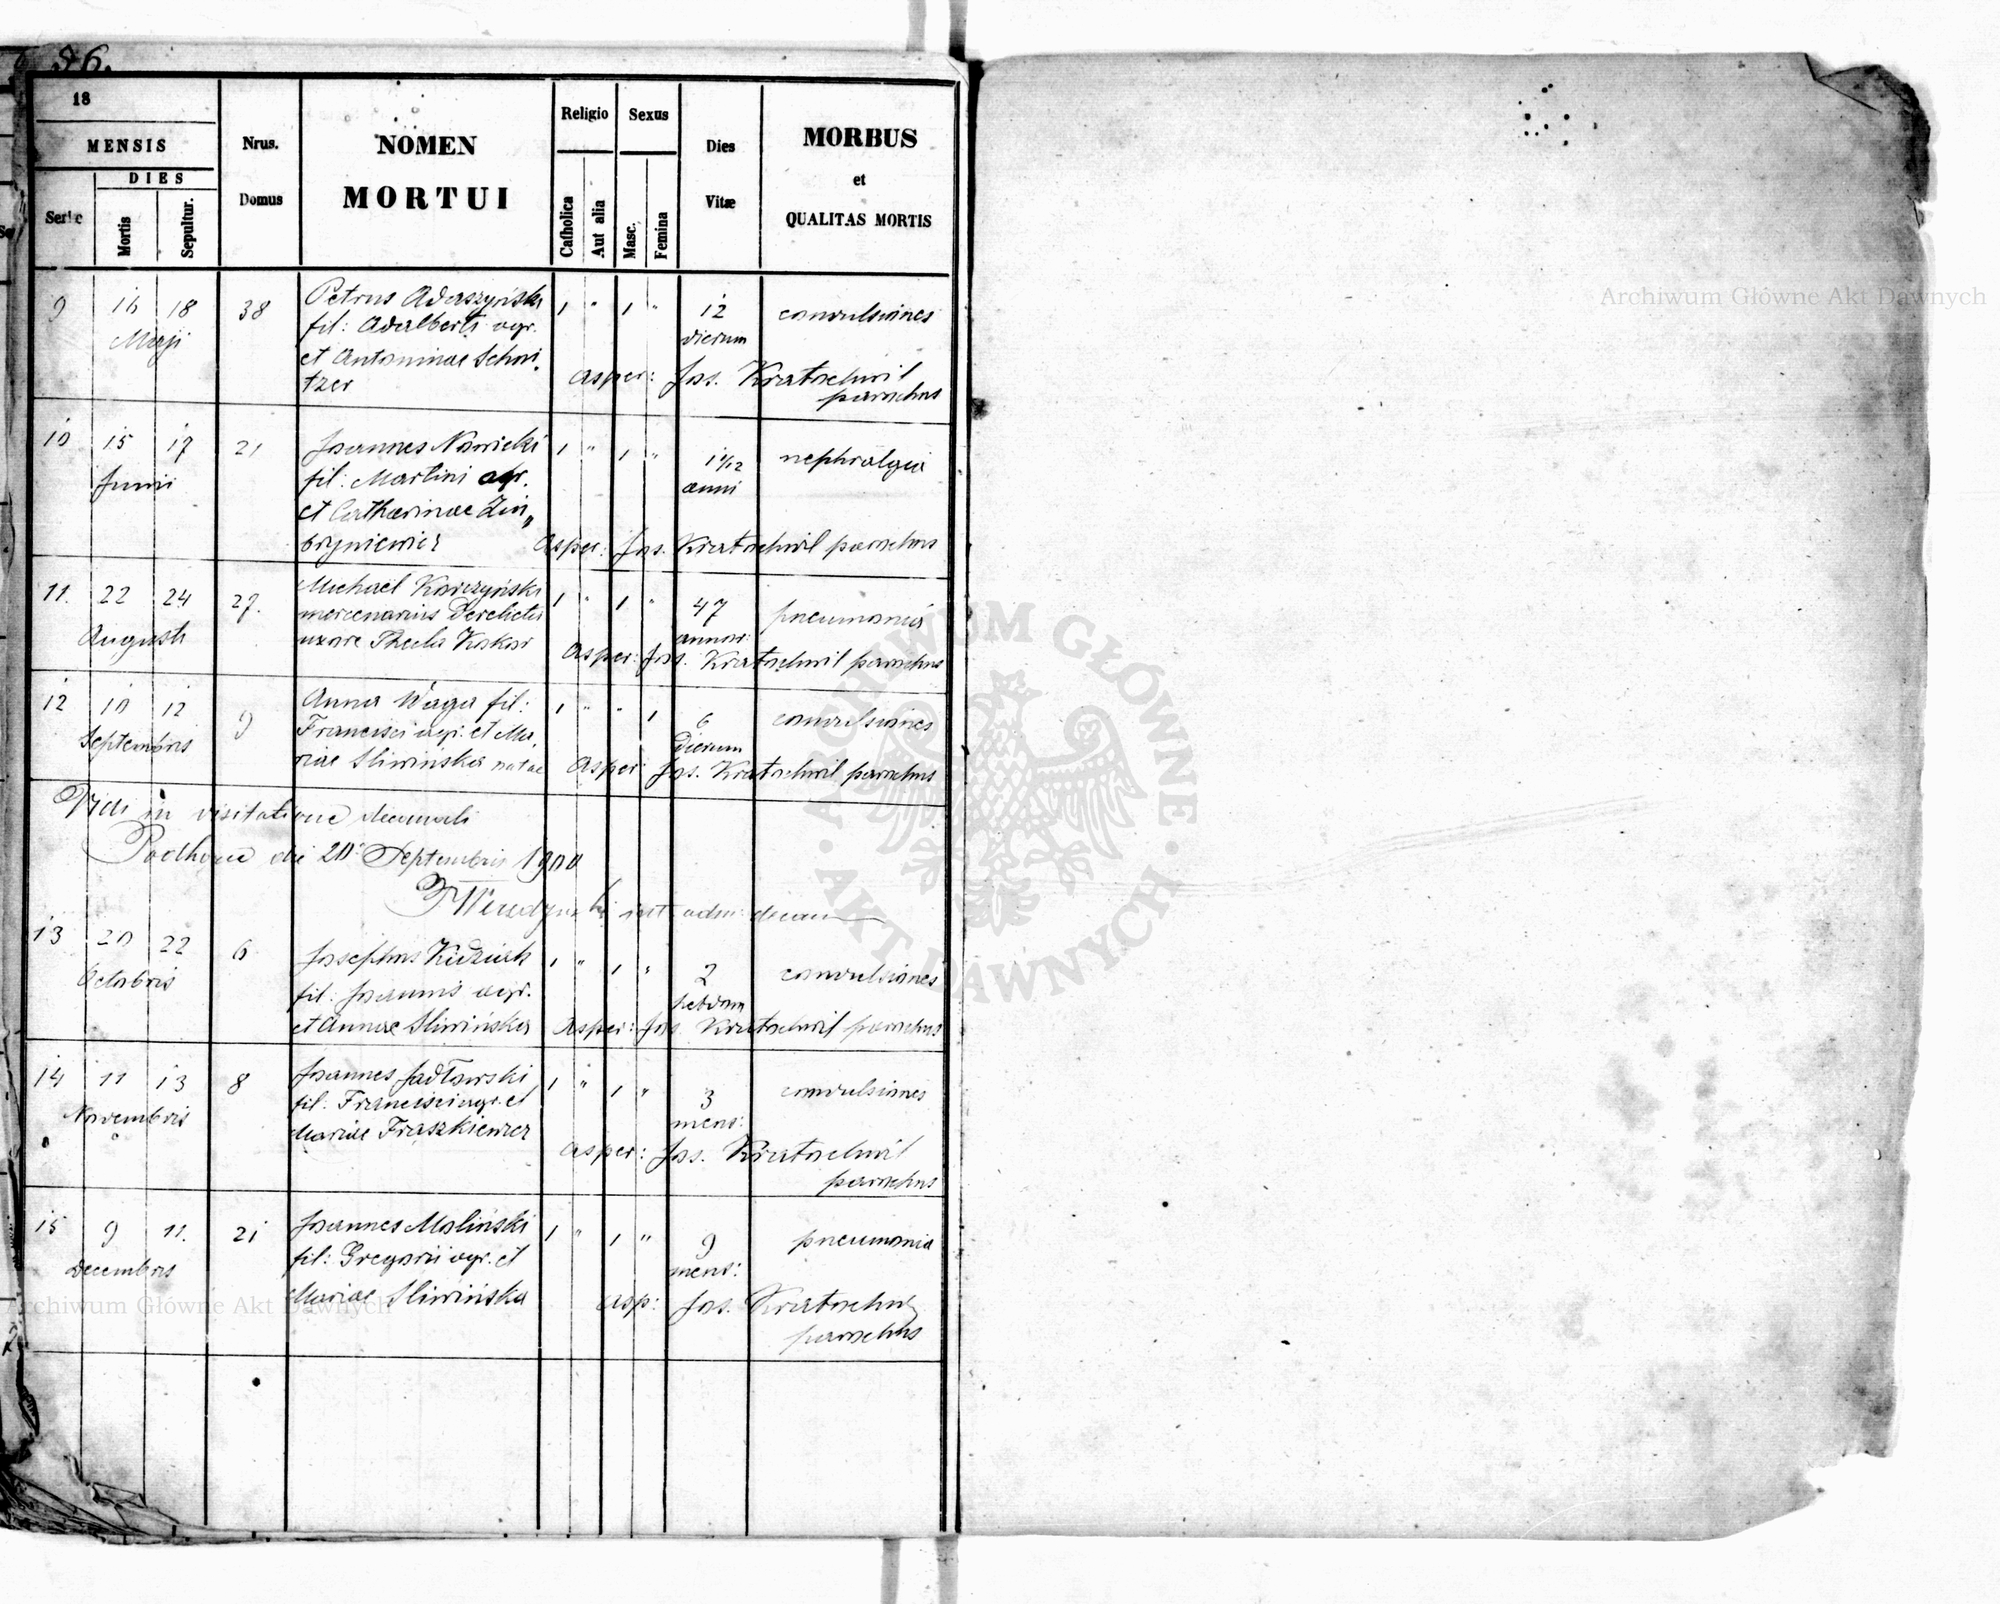 36.
18
MENSIS
DIES
Serie
Mortis
Sepultur.
Nrus.
Domus
NOMEN
MORTUI
Religio
Catholica
Aut alia
Sexus
Masc.
Femina
Dies
Vitæ
MORBUS
et
QUALITAS MORTIS
9 16 18 38 Petrus Adaszyński 1 " 1 " 12 convulsiones
Maji fil: Adalberti agr. dierum
et Antoninae Schni
tzer
asper: Jos. Kratochwil
parochus
10 15 17 21 Joannes Nowicki 1 " 1 " 1 1/12 nephralgia
Junii fil: Martini agr. anni
et Catharinae
Asper: Jos. Kratochwil parochus
11. 22 24 27. Michael Korczyński 1 " 1 " 47 pneumonia
Augusti mercenarius derelicta annor:
uxore Thecla
Asper: Jos. Kratochwil parochus
12 10 12 9 Anna Waga fil: 1 " " 1 6 convulsiones
Septembris Francisci agr. et Ma. dierum
riae Sliwińska natae
Asper: Jos. Kratochwil parochus
Vidi in visitatione decanali
die 20. Septembris 1900
13 20 22 6 Josephus Kudziak 1 " 1 " 2 convulsiones
Octobris fil: Joannis agr. hebdom
et Annae Sliwińska
Asper: Jos. Kratochwil parochus
14 11 13 8 Joannes Jadłowski 1 " 1 " 3 convulsiones
Novembris fil: Francisci agr. et mens:
Mariae Fraszkiewicz
Asper: Jos. Kratochwil
parochus
15 9 11. 21 Joannes Maliński 1 " 1 " 9 pneumonia
Decembris fil: Gregorii agr. et mens:
Mariae Sliwińska
asp: Jos. Kratochwil
parochus
Archiwum Główne Akt Dawnych
ARCHIWUM GŁÓWNE
· AKT DAWNYCH ·
Archiwum Główne Akt Dawnych